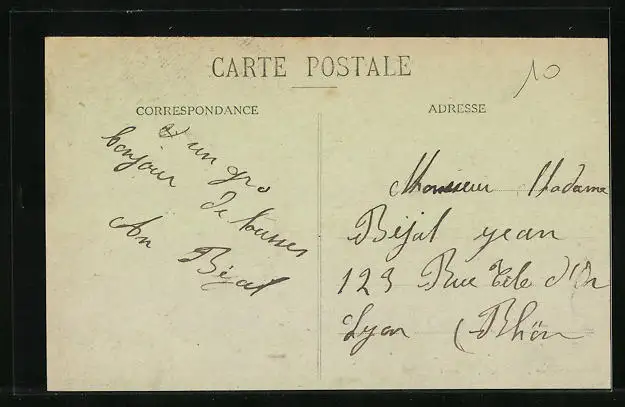 CARTE POSTALE
10
CORRESPONDANCE
un gro
bonjour
de tousses
An Béjat
ADRESSE
Monsieur Madame
Béjat jean
123 Rue Tete d'Or
Lyon (Rhôn